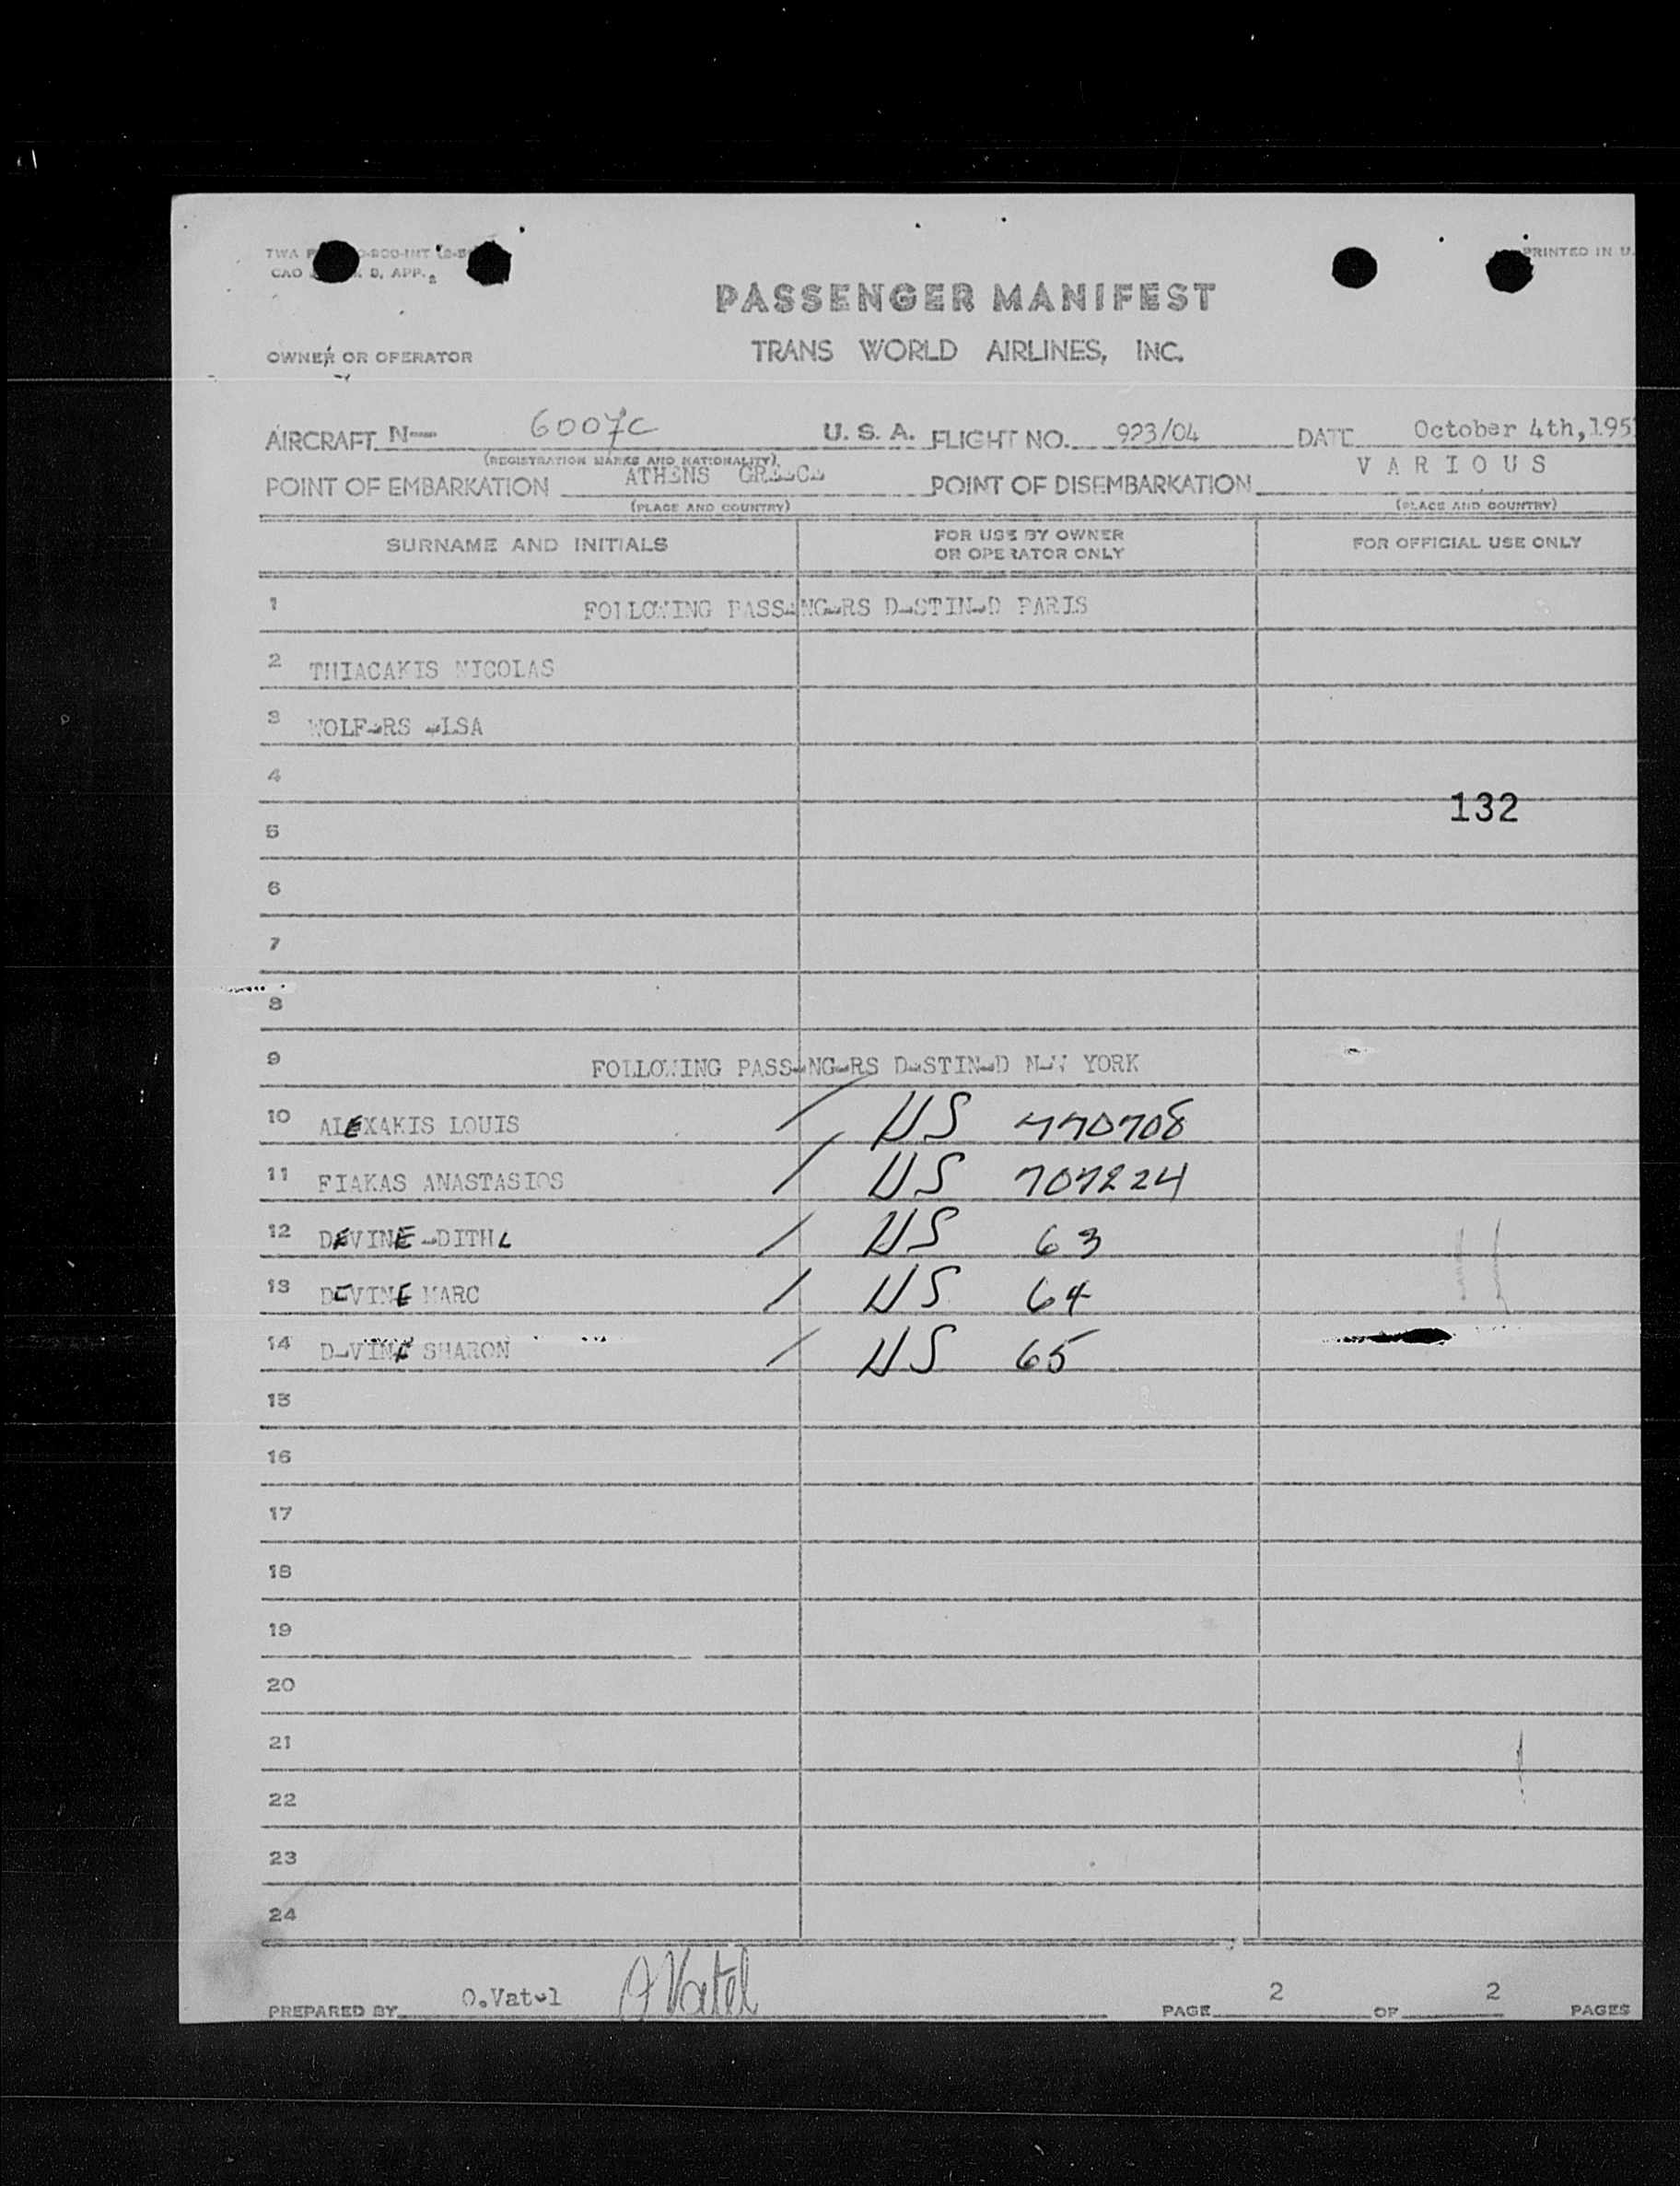 TWA
PRINTED IN U.
CAO D, APP. 2
PASSENGER MANIFEST
OWNER OR OPERATOR
TRANS WORLD AIRLINES, INC.
AIRCRAFT N— 6007C U. S. A. FLIGHT NO. 923/04 DATE October 4th, 195
(REGISTRATION MARKS AND NATIONALITY)
POINT OF EMBARKATION ATHENS GREECE POINT OF DISEMBARKATION VARIOUS
(PLACE AND COUNTRY) (PLACE AND COUNTRY)
SURNAME AND INITIALS FOR USE BY OWNER OR OPERATOR ONLY FOR OFFICIAL USE ONLY
1 FOLLOWING PASSENGERS DESTINED PARIS
2 THIACAKIS NICOLAS
3 WOLFERS ELSA
4
132
5
6
7
8
9 FOLLOWING PASSENGERS DESTINED NEW YORK
10 ALEXAKIS LOUIS / US 770708
11 FIAKAS ANASTASIOS / US 707224
12 DEVINE EDITHE / US 63
13 DEVINE MARC / US 64
14 DEVINE SHARON / US 65
15
16
17
18
19
20
21
22
23
24
PREPARED BY O.Vatel O Vatel PAGE 2 OF 2 PAGES